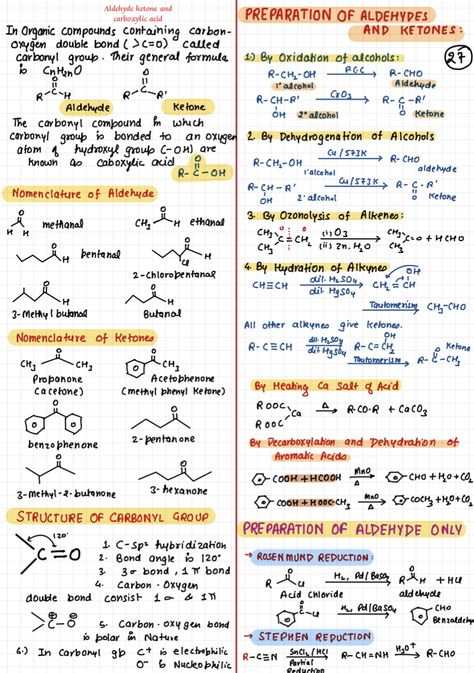 Aldehyde ketone and
carboxylic acid
In Organic compounds containing carbon-
oxygen double bond (>C=O) called
carbonyl group. Their general formula
is CnH2nO
Aldehyde
Ketone
The carbonyl compound in which
carbonyl group is bonded to an oxygen
atom of hydroxyl group (-OH) are
known as caboxylic acid
R-C-OH
Nomenclature of Aldehyde
methanal
ethanal
pentanal
2-chloropentanal
3-Methyl butanal
Butanal
Nomenclature of Ketones
CH3 CH3
Propanone
(acetone)
CH3
Acetophenone
(methyl phenyl Ketone)
benzophenone
2-pentanone
3-Methyl-2-butanone
3-hexanone
STRUCTURE OF CARBONYL GROUP
120°
C=O
1. C-sp² hybridization
2. Bond angle is 120°
3. 3σ bond, 1π bond
4. Carbon-Oxygen
double bond consist 1σ & 1π
5. Carbon-oxygen bond
is polar in Nature
6.) In Carbonyl gp C+ is electrophilic
O- is Nucleophilic
PREPARATION OF ALDEHYDES
AND KETONES:
27
1.) By Oxidation of alcohols:
R-CH2-OH P.C.C R-CHO
1° alcohol Aldehyde
R-CH-R' CrO3 R-C-R'
OH 2° alcohol Ketone
2. By Dehydrogenation of Alcohols
R-CH2-OH Cu/573K R-CHO
1° alcohol aldehyde
R-CH-R' Cu/573K R-C-R'
OH 2° alcohol Ketone
3. By Ozonolysis of Alkenes:
(i) O3
(ii) Zn, H2O
+ HCHO
4. By Hydration of Alkynes
CH≡CH dil. H2SO4 CH2=CH
dil. HgSO4 OH
Tautomerism CH3-CHO
All other alkynes give Ketones.
R-C≡CH dil. H2SO4 R-C=CH2
dil. HgSO4 OH
Tautomerism R-C-CH3
Ketone
By Heating Ca Salt of Acid
ROOC
Ca Δ R-CO-R + CaCO3
ROOC
By Decarboxylation and Dehydration of
Aromatic Acids
COOH + HCOOH MnO Δ CHO + H2O + CO2
COOH + HOOC CH3 MnO Δ COCH3 + H2O + CO2
PREPARATION OF ALDEHYDE ONLY
→ ROSENMUND REDUCTION:
R Cl H2, Pd/BaSO4 R H + HCl
Acid Chloride aldehyde
H2, Pd/BaSO4 CHO
Benzaldehyde
→ STEPHEN REDUCTION
R-C≡N SnCl2/HCl R-CH=NH H3O+ R-CHO
Partial
Reduction